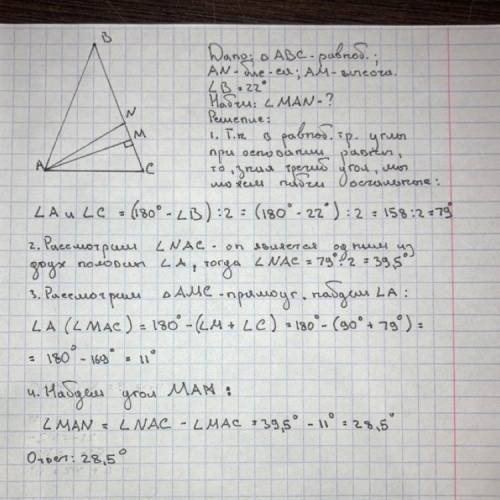 B
N
M
A
C
Дано: △ ABC - равноб.;
AN - бис-са; AM - высота.
∠B = 22°
Найти: ∠MAN - ?
Решение:
1. Т.к в равноб. тр. углы
при основании равны,
то, зная третий угол, мы
можем найти остальные:
∠A и ∠C = (180° - ∠B) : 2 = (180° - 22°) : 2 = 158 : 2 = 79°
2. Рассмотрим ∠NAC - он является одним из
двух половин ∠A, тогда ∠NAC = 79° : 2 = 39,5°
3. Рассмотрим △AMC - прямоуг, найдем ∠A:
∠A (∠MAC) = 180° - (∠M + ∠C) = 180° - (90° + 79°) =
= 180° - 169° = 11°
4. Найдем угол MAN:
∠MAN = ∠NAC - ∠MAC = 39,5° - 11° = 28,5°
Ответ: 28,5°